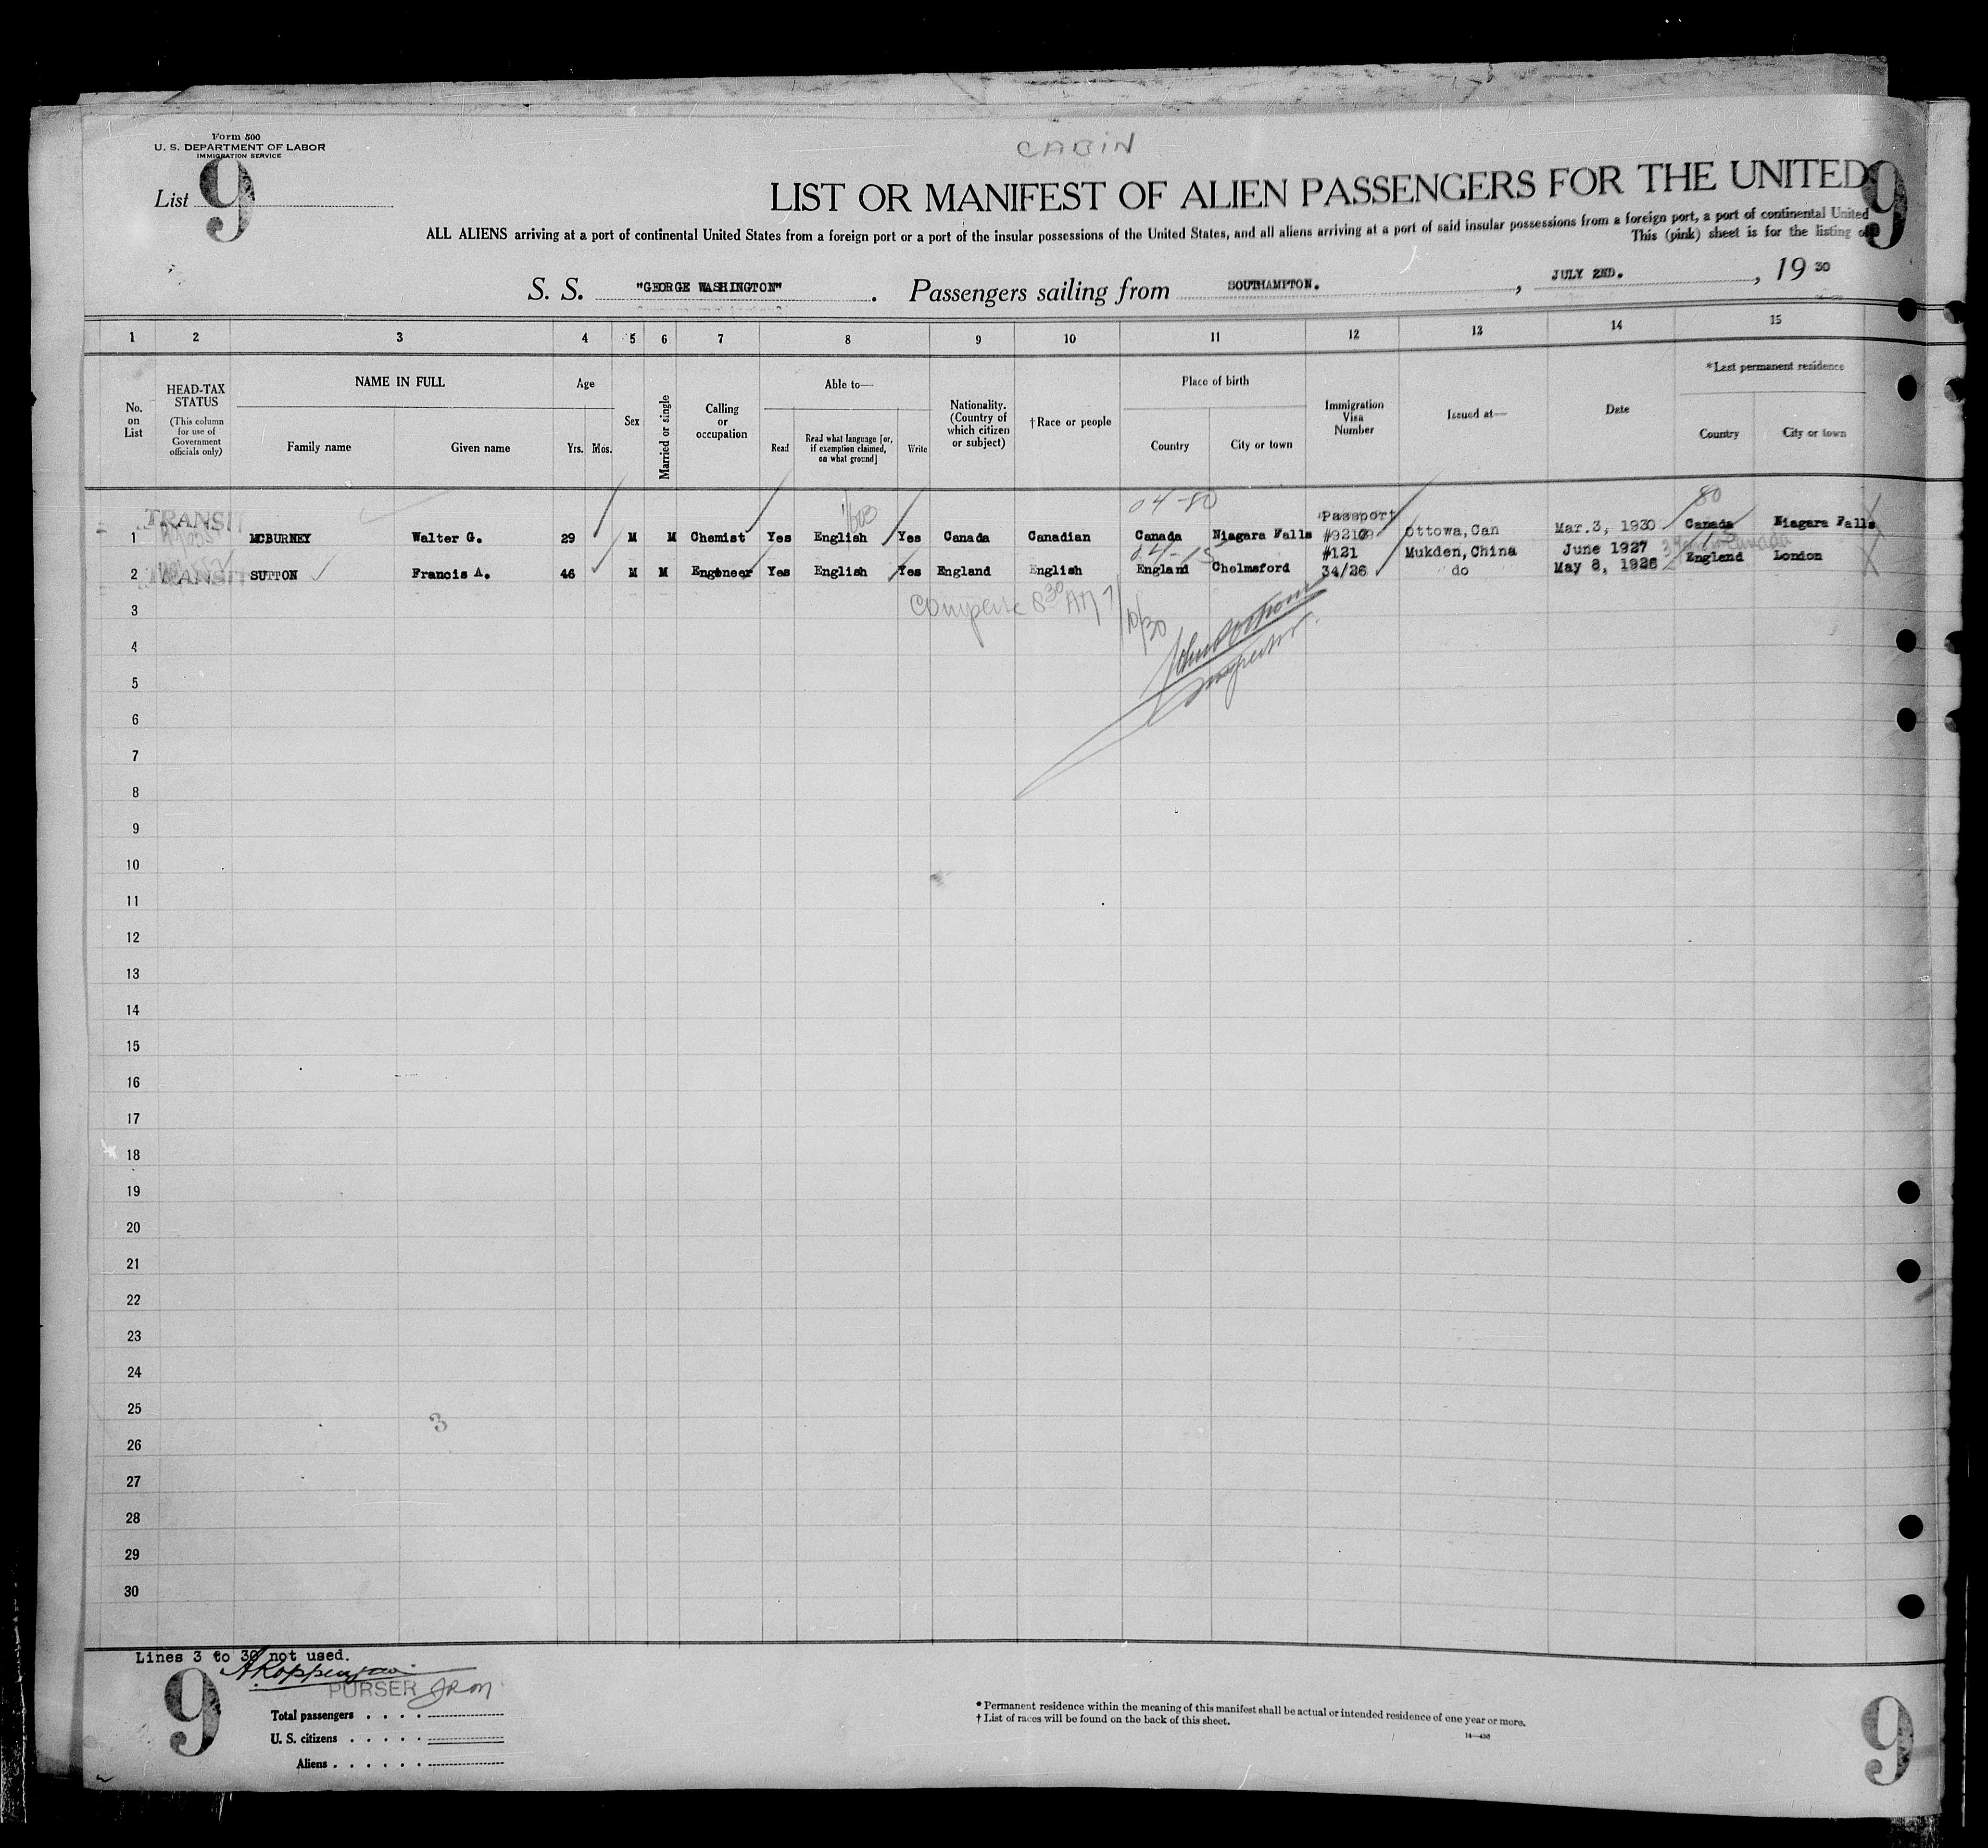 CABIN
Form 500
U. S. DEPARTMENT OF LABOR
IMMIGRATION SERVICE
List 9
LIST OR MANIFEST OF ALIEN PASSENGERS FOR THE UNITED
9
ALL ALIENS arriving at a port of continental United States from a foreign port or a port of the insular possessions of the United States, and all aliens arriving at a port of said insular possessions from a foreign port, a port of continental United
This (pink) sheet is for the listing
S. S. "GEORGE WASHINGTON". Passengers sailing from SOUTHAMPTON. , JULY 2ND. , 19 30
1 2 3 4 5 6 7 8 9 10 11 12 13 14 15
HEAD-TAX STATUS NAME IN FULL Age Able to— Place of birth *Last permanent residence
No. on List (This column for use of Government officials only) Family name Given name Yrs. Mos. Sex Married or single Calling or occupation Read Read what language [or, if exemption claimed, on what ground] Write Nationality. (Country of which citizen or subject) †Race or people Country City or town Immigration Visa Number Issued at— Date Country City or town
TRANSIT 04-80 80
Passport
1 MCBURNEY Walter G. 29 M M Chemist Yes English Yes Canada Canadian Canada Niagara Falls Ottowa, Can Mar.3, 1930 Canada Niagara Falls
#121 Mukden, China June 1927
2 TRANSIT SUTTON Francis A. 46 M M Engeneer Yes English Yes England English England Chelmsford 34/26 do May 8, 1926 England London
3 Complete 8 30 AM 7/10/30
4
5 Inspector.
6
7
8
9
10
11
12
13
14
15
16
17
18
19
20
21
22
23
24
25 3
26
27
28
29
30
Lines 3 to 30 not used.
PURSER
9
Total passengers
U. S. citizens
Aliens
* Permanent residence within the meaning of this manifest shall be actual or intended residence of one year or more.
† List of races will be found on the back of this sheet.
9